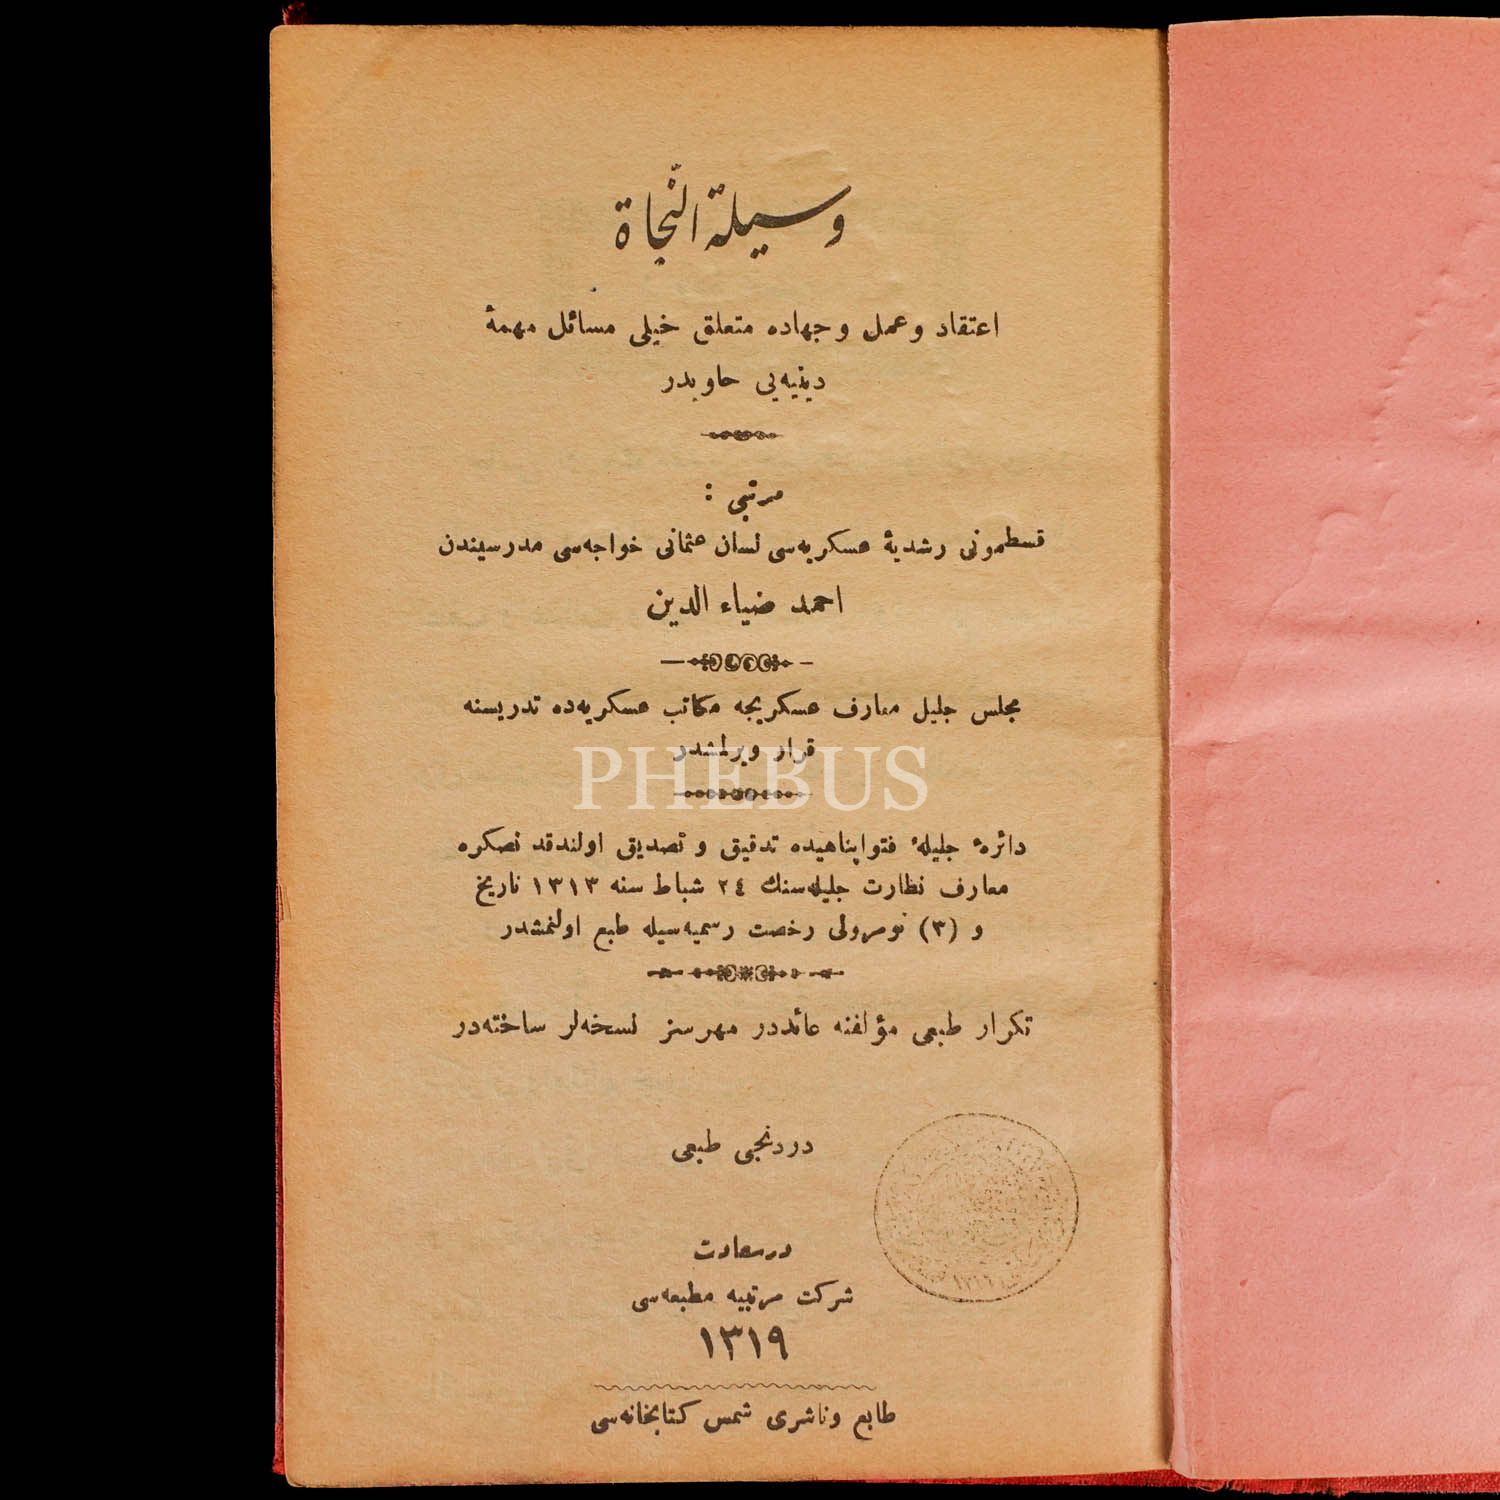 وسیلة النّجاة
اعتقاد و عمل و جهاده متعلق خیلی مسائل مهمهٔ
دینیه‌یی حاویدر
مرتبی :
قسطمونی رشدیهٔ عسكریه‌سی لسان عثمانی خواجه‌سی مدرسیندن
احمد ضیاء الدین
مجلس جلیل معارف عسكریجه مكاتب عسكریه‌ده تدریسنه
قرار ویرلمشدر
PHEBUS
دائرهٔ جلیلهٔ فتواپناهیده تدقیق و تصدیق اولندقد نصكره
معارف نظارت جلیله‌سنك ٢٤ شباط سنه ١٣١٣ تاریخ
و (٣) نومرولی رخصت رسمیه‌سیله طبع اولنمشدر
تكرار طبعی مؤلفنه عائددر مهرسز نسخه‌لر ساخته‌در
دردنجی طبعی
درسعادت
شركت مرتبیه مطبعه‌سی
١٣١٩
طابع وناشری شمس كتابخانه‌سی